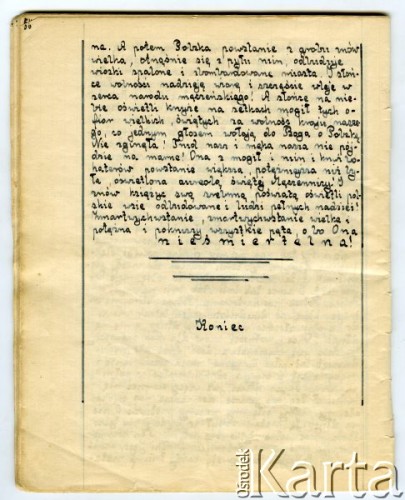 na. A potem Polska powstanie z grobu znów
wielka, otrząśnie się z pyłu ruin, odbuduje
wioski spalone i zbombardowane miasta. I słoń-
ce wolności nadzieję wiarę i szczęście wleje w
serca narodu męczeńskiego! A słońce na nie-
bie oświetli krzyże na setkach mogił tych o-
fiar wielkich, świętych za wolność kraju nasze-
go, co jednym głosem wołają do Boga o Polskę.
Nie zginęła! Trud nasz i męka nasza nie pój-
dzie na marne! Ona z mogił i ruin i krwi bo-
haterów powstanie większa, potężniejsza niż by-
ła, oświetlona aureolą świętej Męczennicy! I
znów księżyc swą srebrną poświatą oświetli pol-
skie wsie odbudowane i ludzi pełnych nadziei!
Zmartwychwstanie, zmartwychwstanie wielka i
potężna i pokruszy wszystkie pęta, o bo Ona
nieśmiertelna!
Koniec
ośrodek
Karta